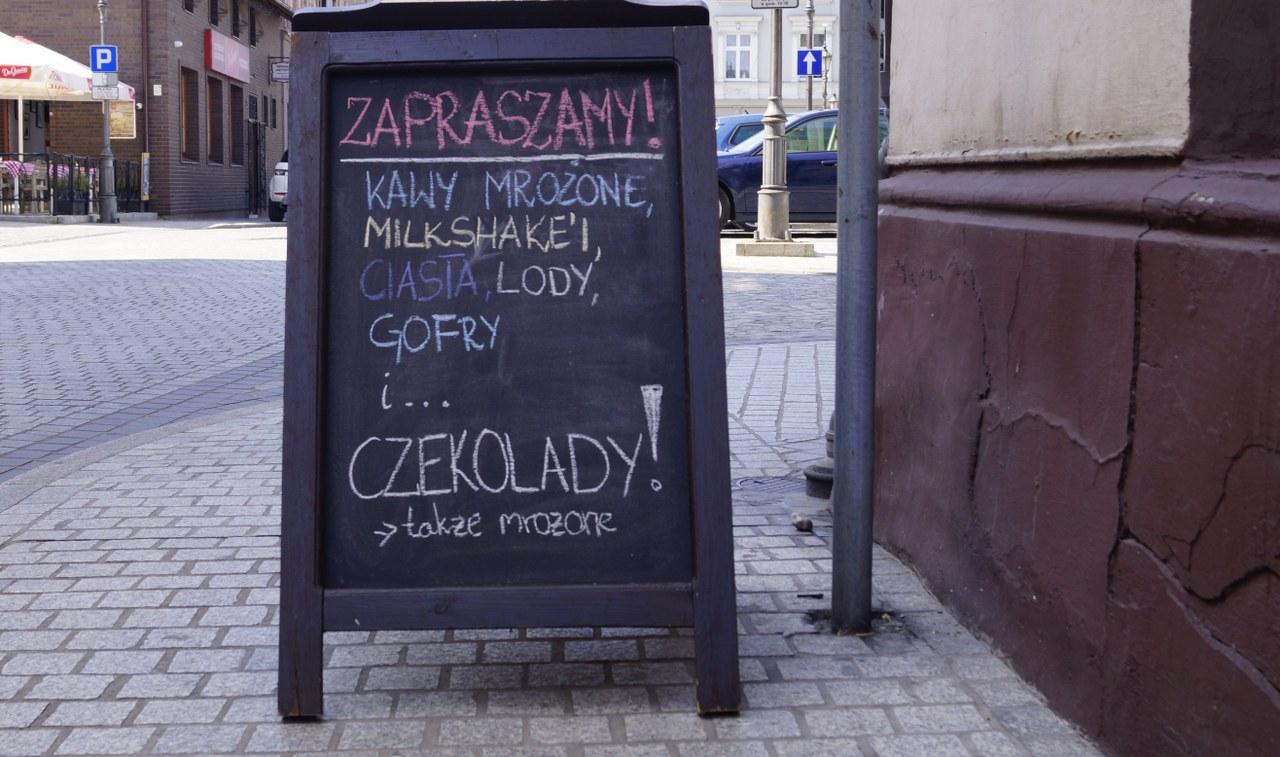 ZAPRASZAMY!
KAWY MROŻONE,
MILKSHAKE'I,
CIASTA, LODY,
GOFRY
i...
CZEKOLADY!
→ także mrożone
P